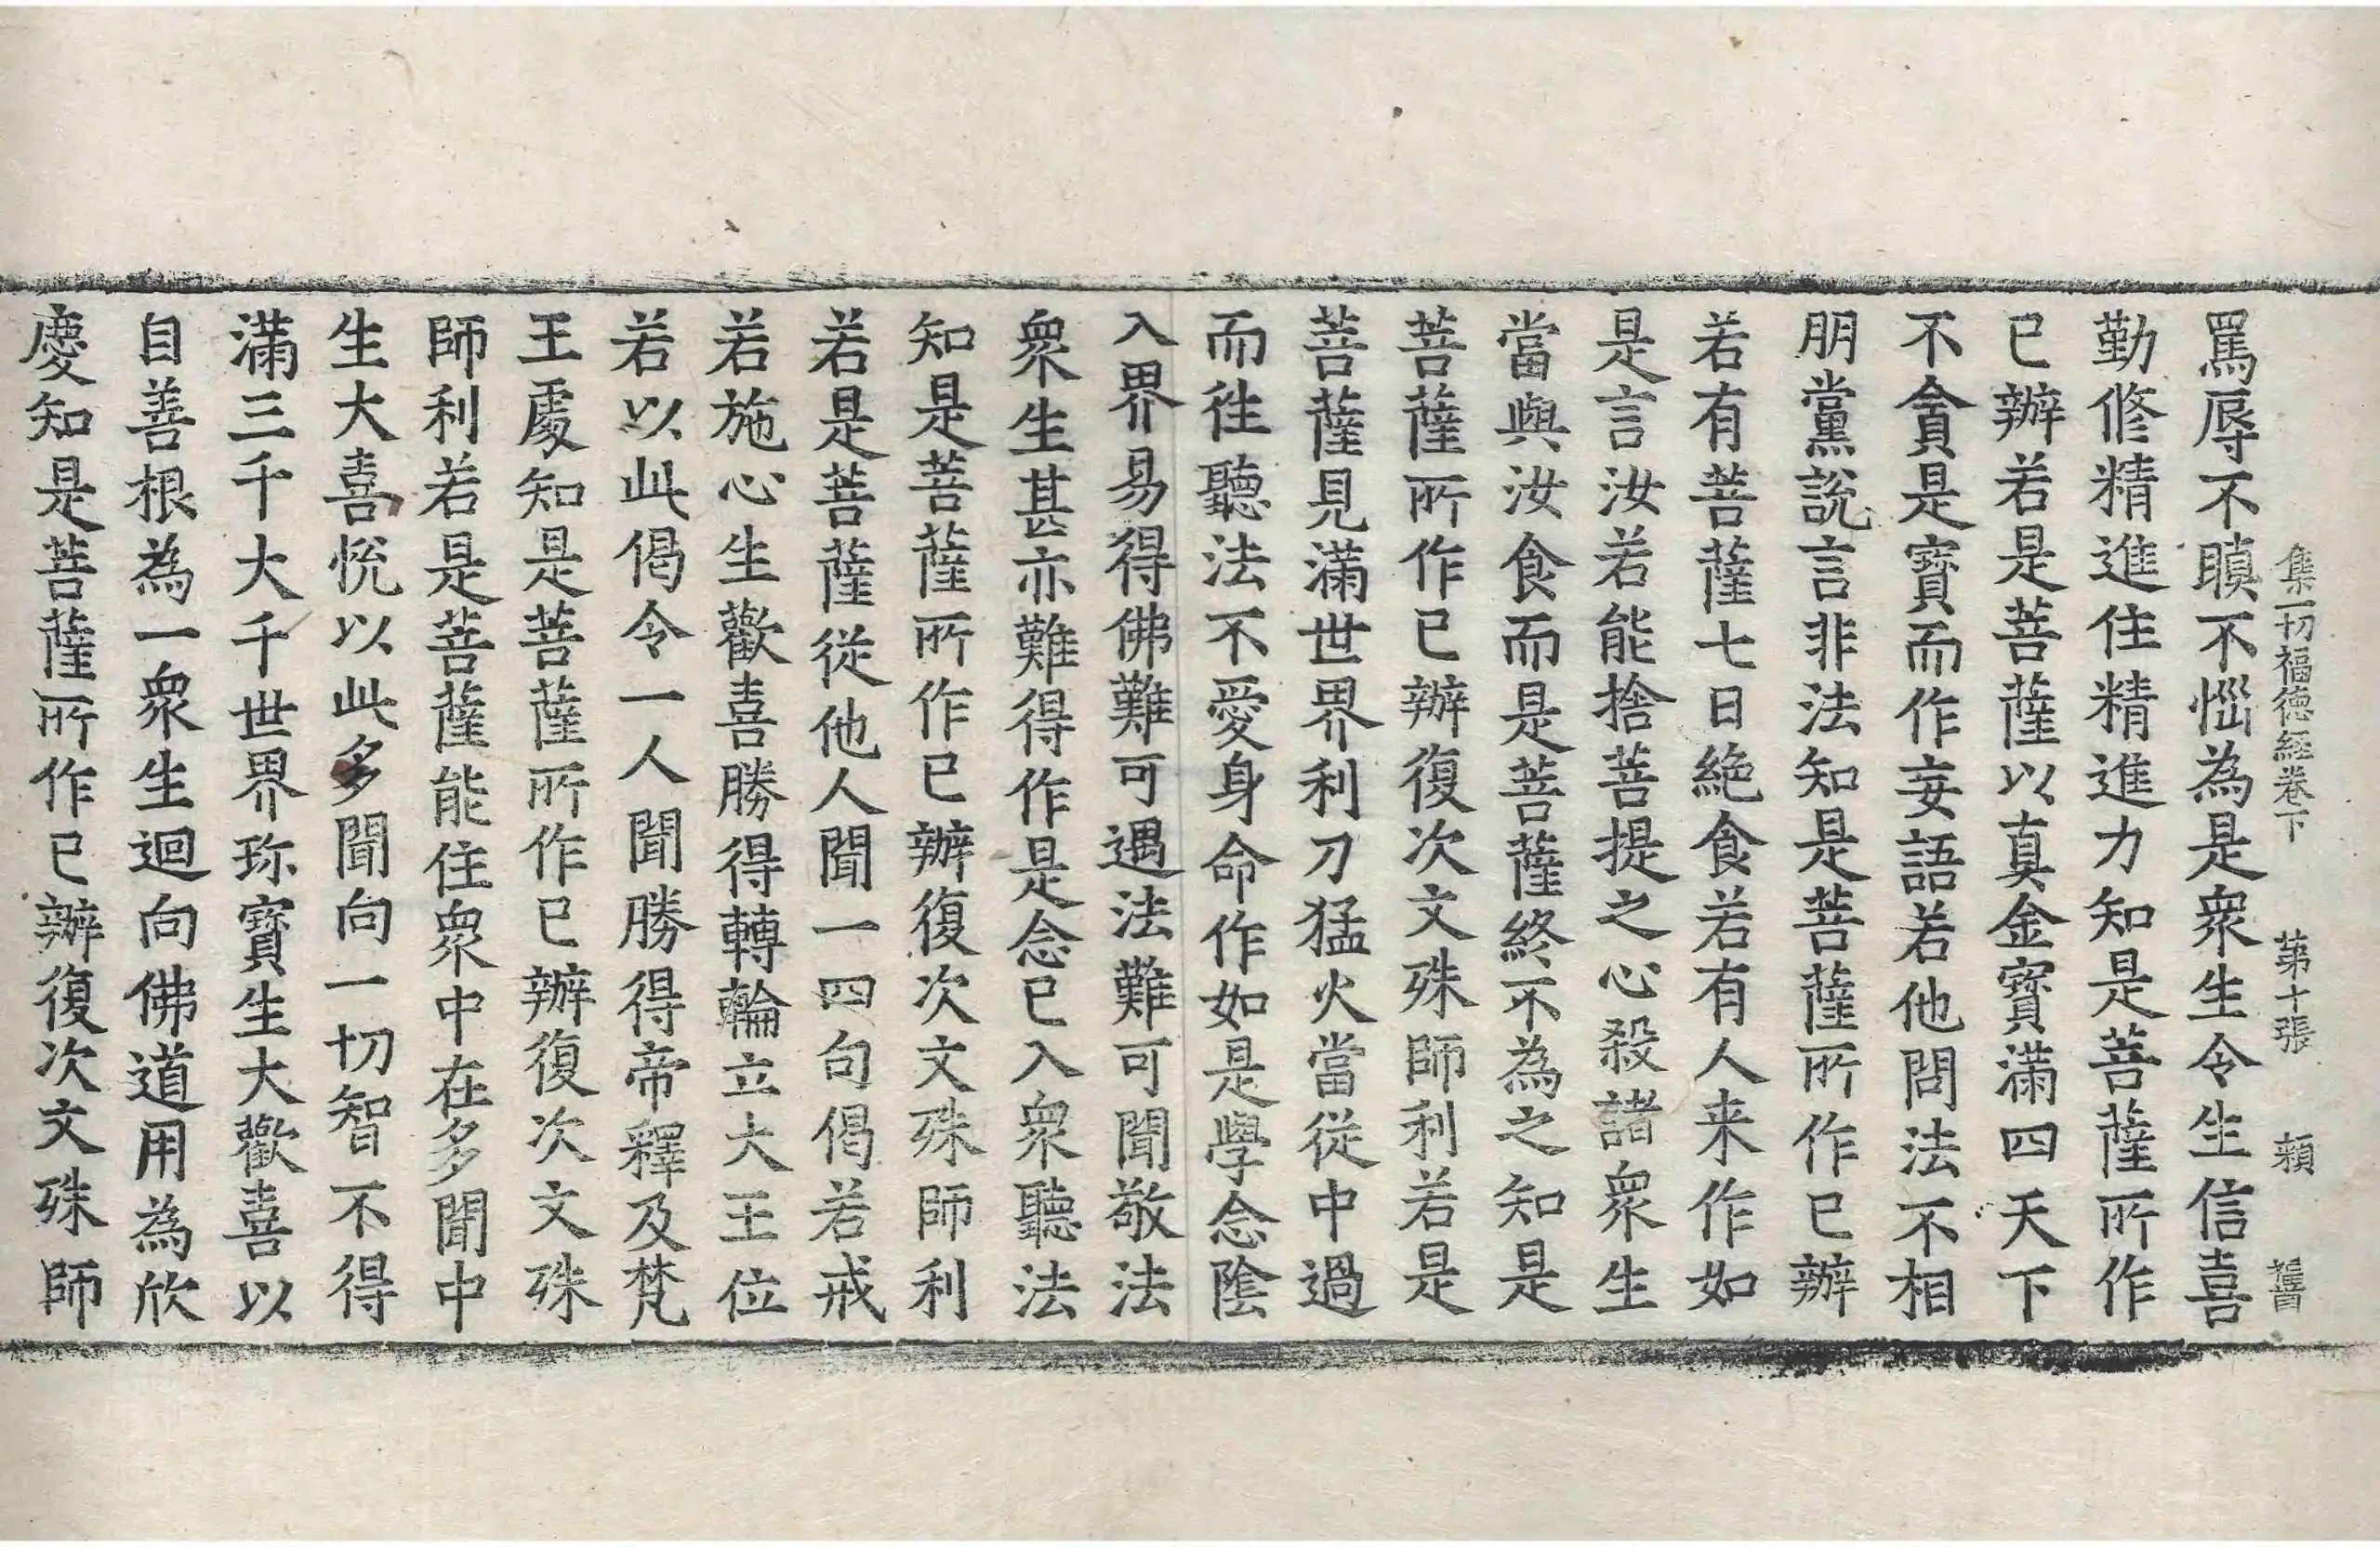 集一切福德經卷下 第十張 頼
罵辱不瞋不惱為是衆生令生信喜
勤修精進住精進力知是菩薩所作
已辦若是菩薩以真金寶滿四天下
不貪是寶而作妄語若他問法不相
朋黨說言非法知是菩薩所作已辦
若有菩薩七日絶食若有人来作如
是言汝若能捨菩提之心殺諸衆生
當與汝食而是菩薩終不為之知是
菩薩所作已辦復次文殊師利若是
菩薩見滿世界利刀猛火當從中過
而徃聽法不愛身命作如是學念陰
入界易得佛難可遇法難可聞敬法
衆生甚亦難得作是念已入衆聽法
知是菩薩所作已辦復次文殊師利
若是菩薩從他人聞一四句偈若戒
若施心生歡喜勝得轉輪立大王位
若以此偈令一人聞勝得帝釋及梵
王處知是菩薩所作已辦復次文殊
師利若是菩薩能住衆中在多聞中
生大喜悅以此多聞向一切智不得
滿三千大千世界珎寶生大歡喜以
自善根為一衆生迴向佛道用為欣
慶知是菩薩所作已辦復次文殊師